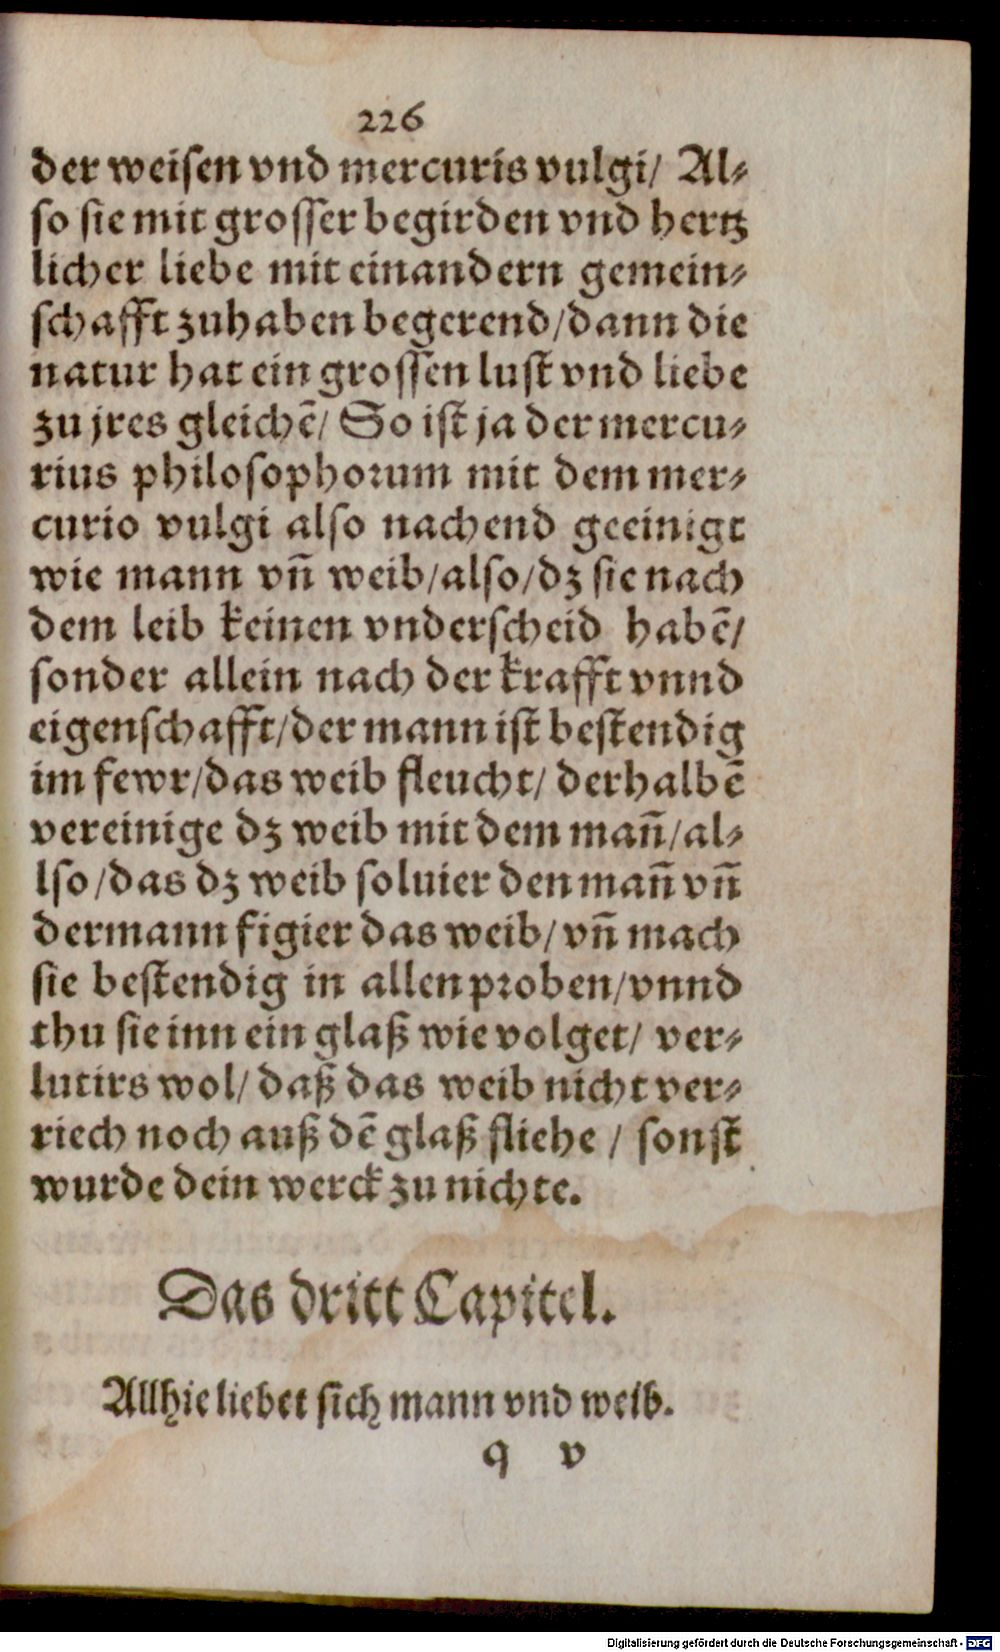 226
der weisen vnd mercuris vulgi/ Al⸗
so sie mit grosser begirden vnd hertz
licher liebe mit einandern gemein⸗
schafft zuhaben begerend/dann die
natur hat ein grossen lust vnd liebe
zu jres gleichē/ So ist ja der mercu⸗
rius philosophorum mit dem mer⸗
curio vulgi also nachend geeinigt
wie mann vn̄ weib/also/dz sie nach
dem leib keinen vnderscheid habē/
sonder allein nach der krafft vnnd
eigenschafft/der mann ist bestendig
im fewr/das weib fleucht/ derhalbē
vereinige dz weib mit dem man̄/al⸗
lso/das dz weib soluier den man̄ vn̄
der mann figier das weib/ vn̄ mach
sie bestendig in allen proben/vnnd
thu sie inn ein glaß wie volget/ ver⸗
lutirs wol/ daß das weib nicht ver⸗
riech noch auß dē glaß fliehe / sonst
wurde dein werck zu nichte.
Das dritt Capitel.
Allhie liebet sich mann vnd weib.
q v
Digitalisierung gefördert durch die Deutsche Forschungsgemeinschaft - DFG